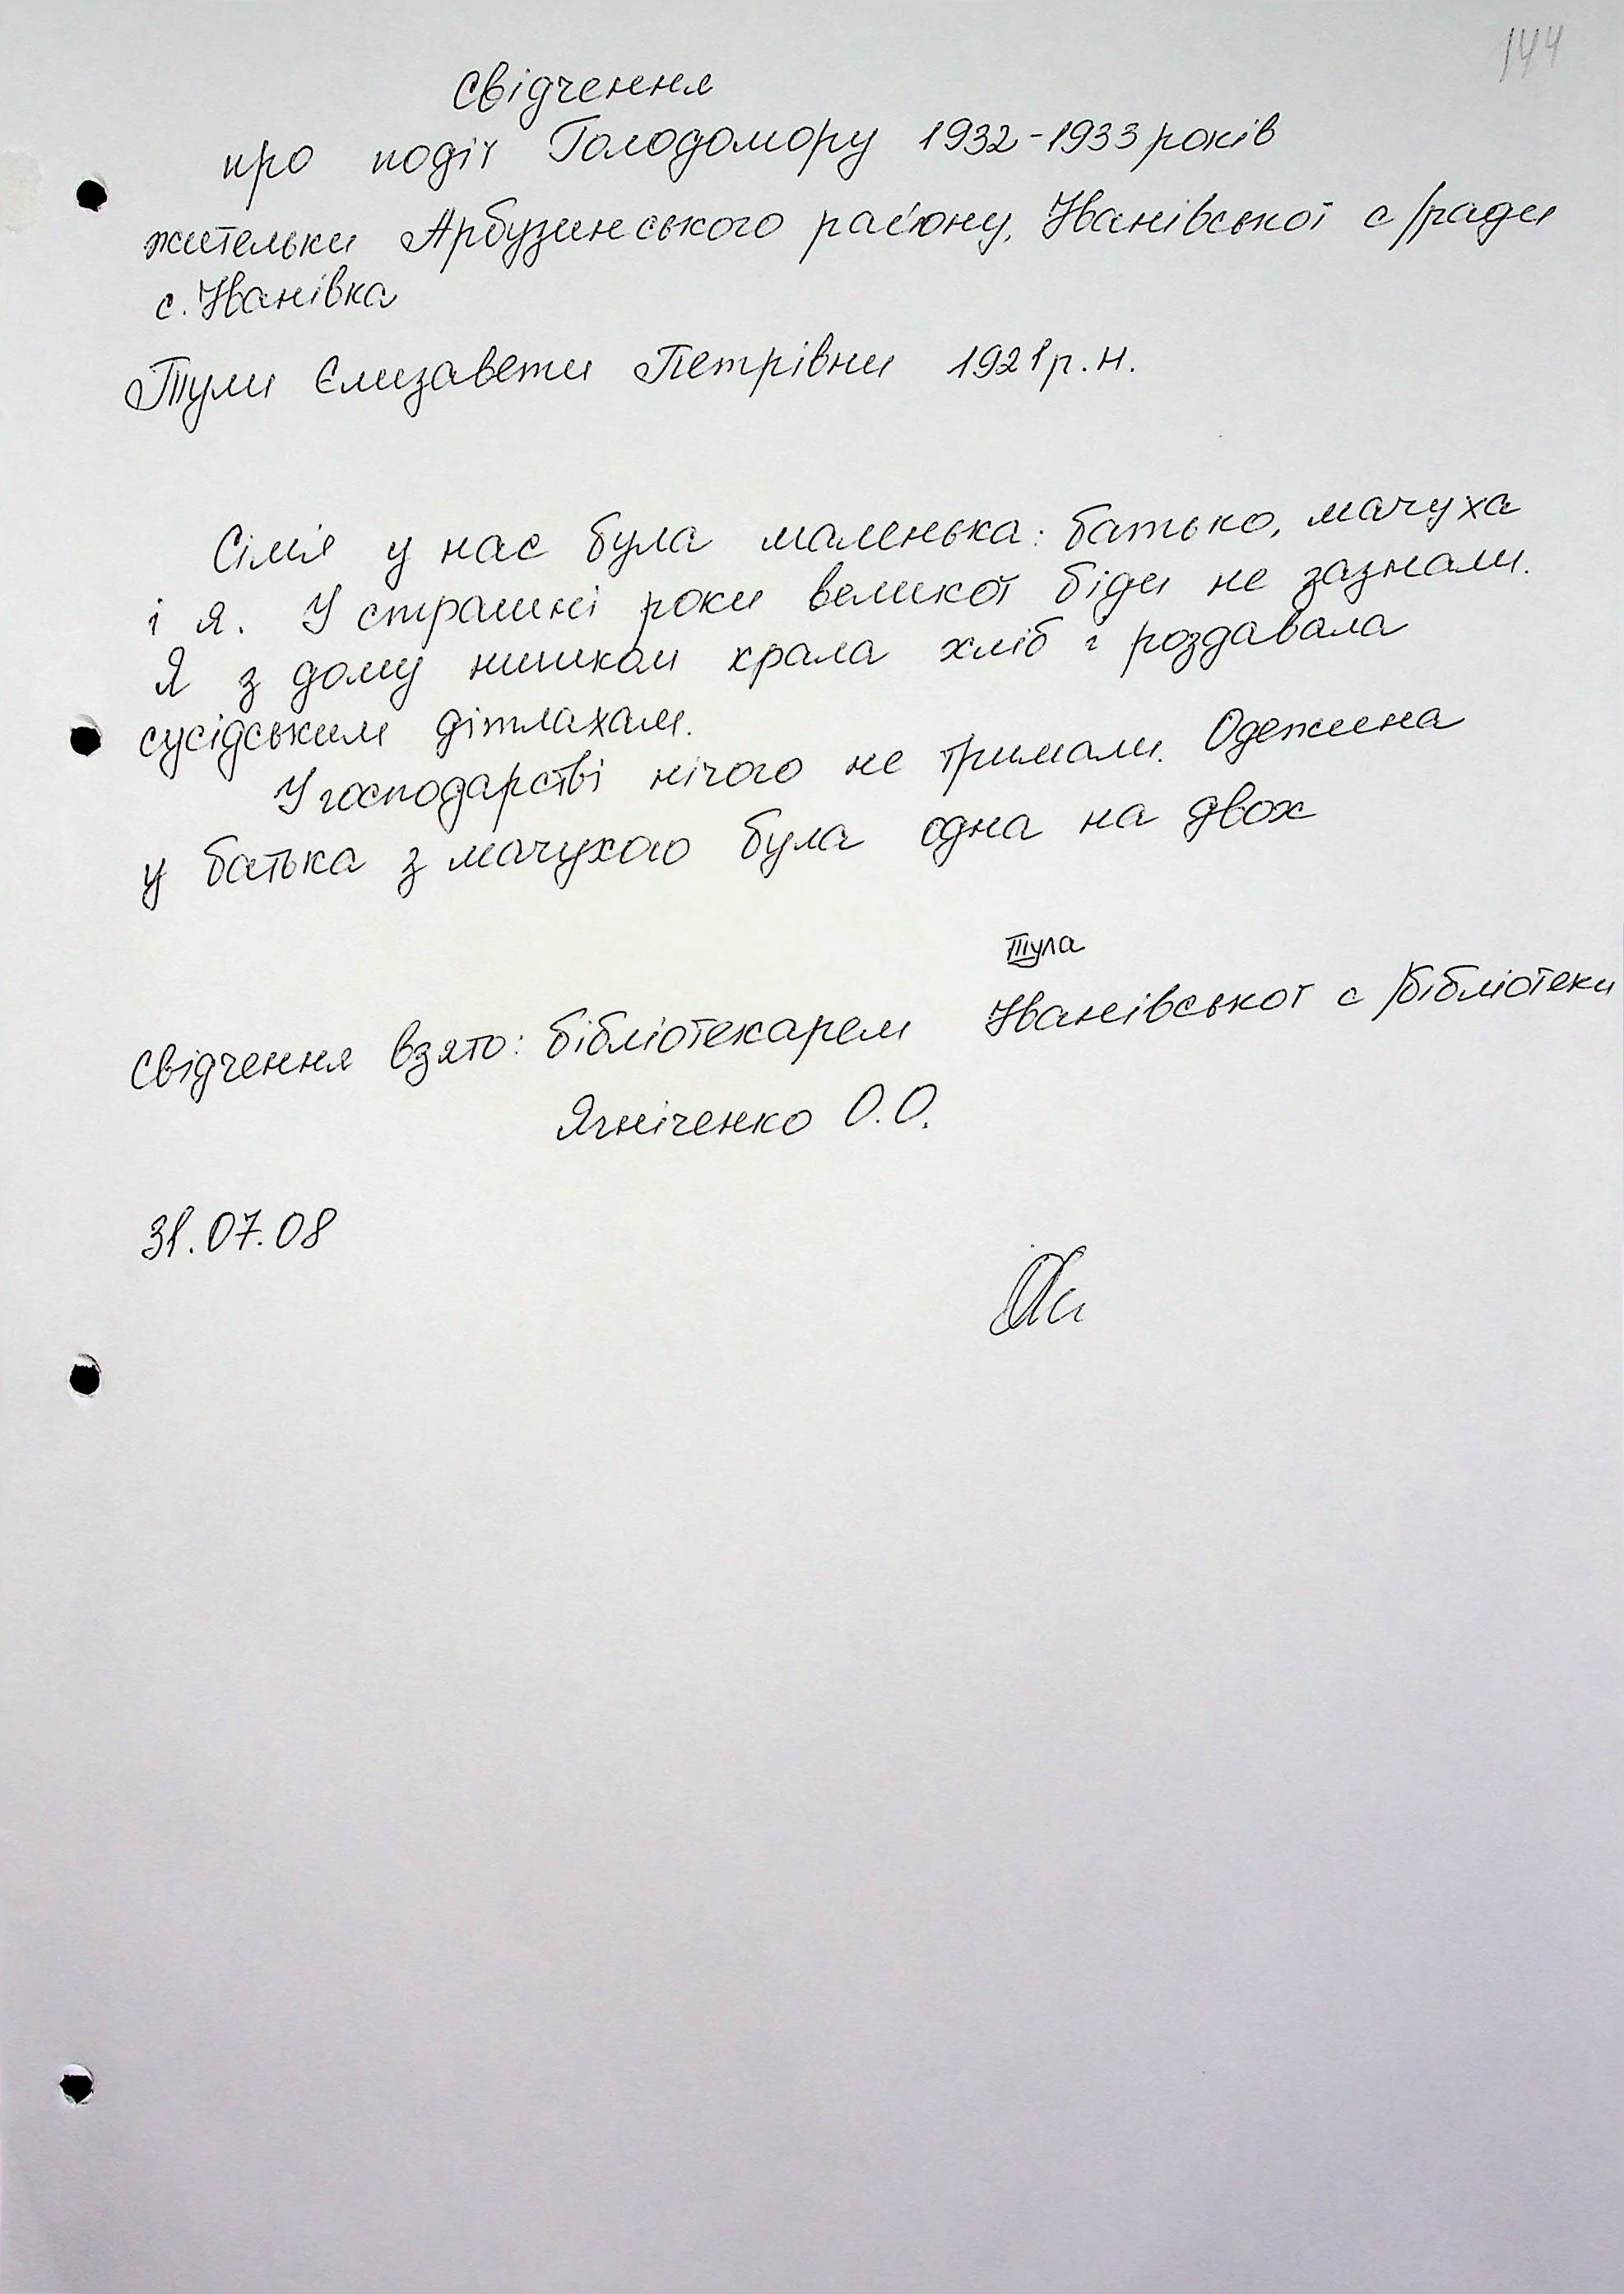 144
Свідчення
про події Голодомору 1932-1933 років
жительки Арбузинського району, Іванівської с/ради
с. Іванівка
Тули Єлизавети Петрівни 1921р.н.
Сім'я у нас була маленька: батько, мачуха
і я. У страшні роки великої біди не зазнали.
Я з дому нишком крала хліб і роздавала
сусідським дітлахам.
У господарстві нічого не тримали. Одежина
у батька з мачухою була одна на двох
Тула
Свідчення взято: бібліотекарем Іванівської с/бібліотеки
Ягніченко О.О.
31.07.08